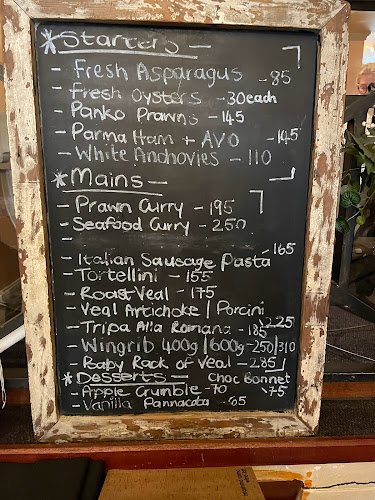 * Starters -
- Fresh Asparagus - 85
- Fresh Oysters - 30each
- Panko Prawns - 145
- Parma Ham + AVO - 145
- White Anchovies - 110
* Mains -
- Prawn Curry - 195
- Seafood Curry - 250
-
- Italian Sausage Pasta - 165
- Tortellini - 155
- Roast Veal - 175
- Veal Artichoke / Porcini 225
- Tripa Alla Romana - 185
- Wingrib 400g/600g - 250/310
- Baby Rack of Veal - 285
* Desserts - Choc Bonnet
- Apple Crumble - 70 - 75
- Vanilla Pannacota - 65